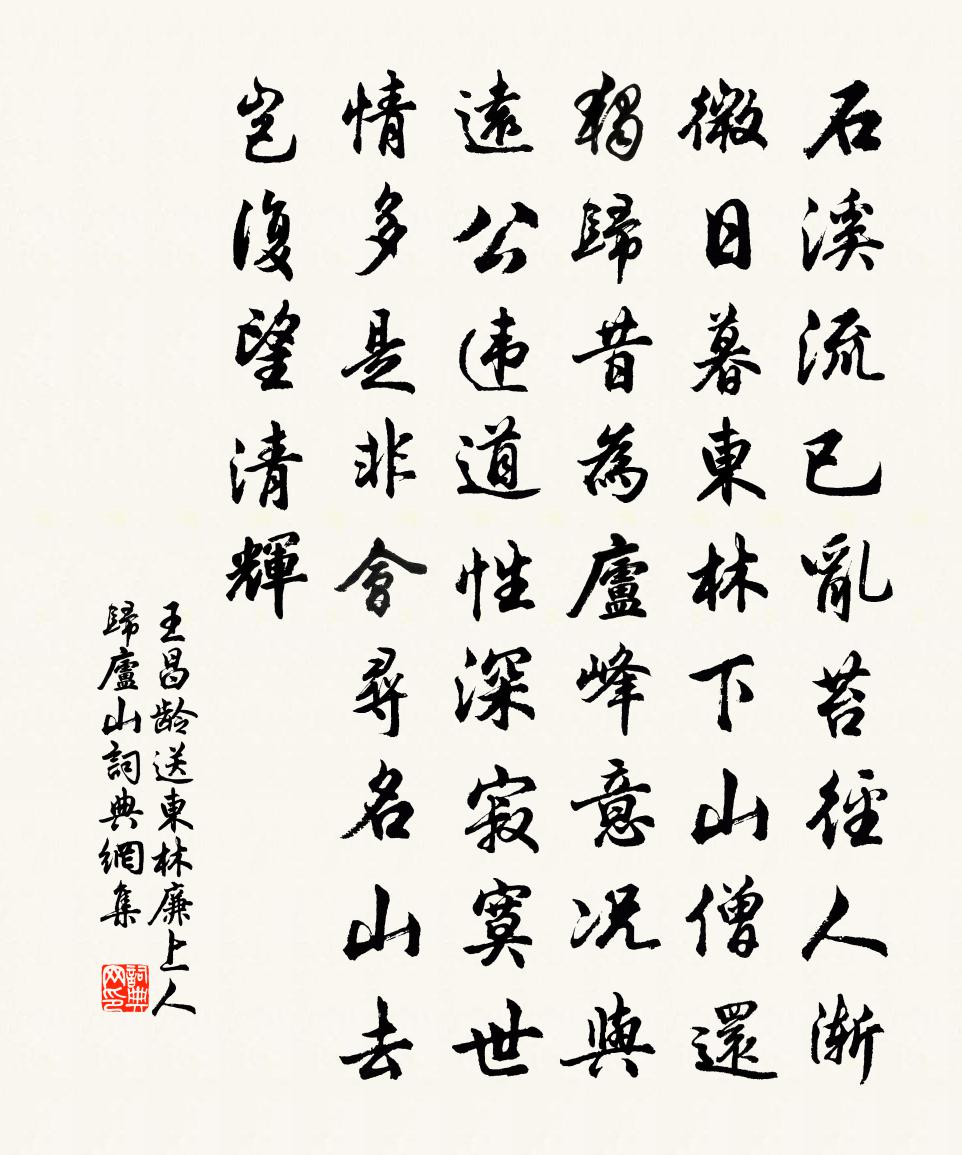 石溪流已亂苔徑人漸
微日暮東林下山僧還
獨歸昔為廬峰意况與
遠公违道性深寂寞世
情多是非會尋名山去
岂復望清輝
王昌龄送東林廉上人
歸廬山詞典網集
詞典
网印